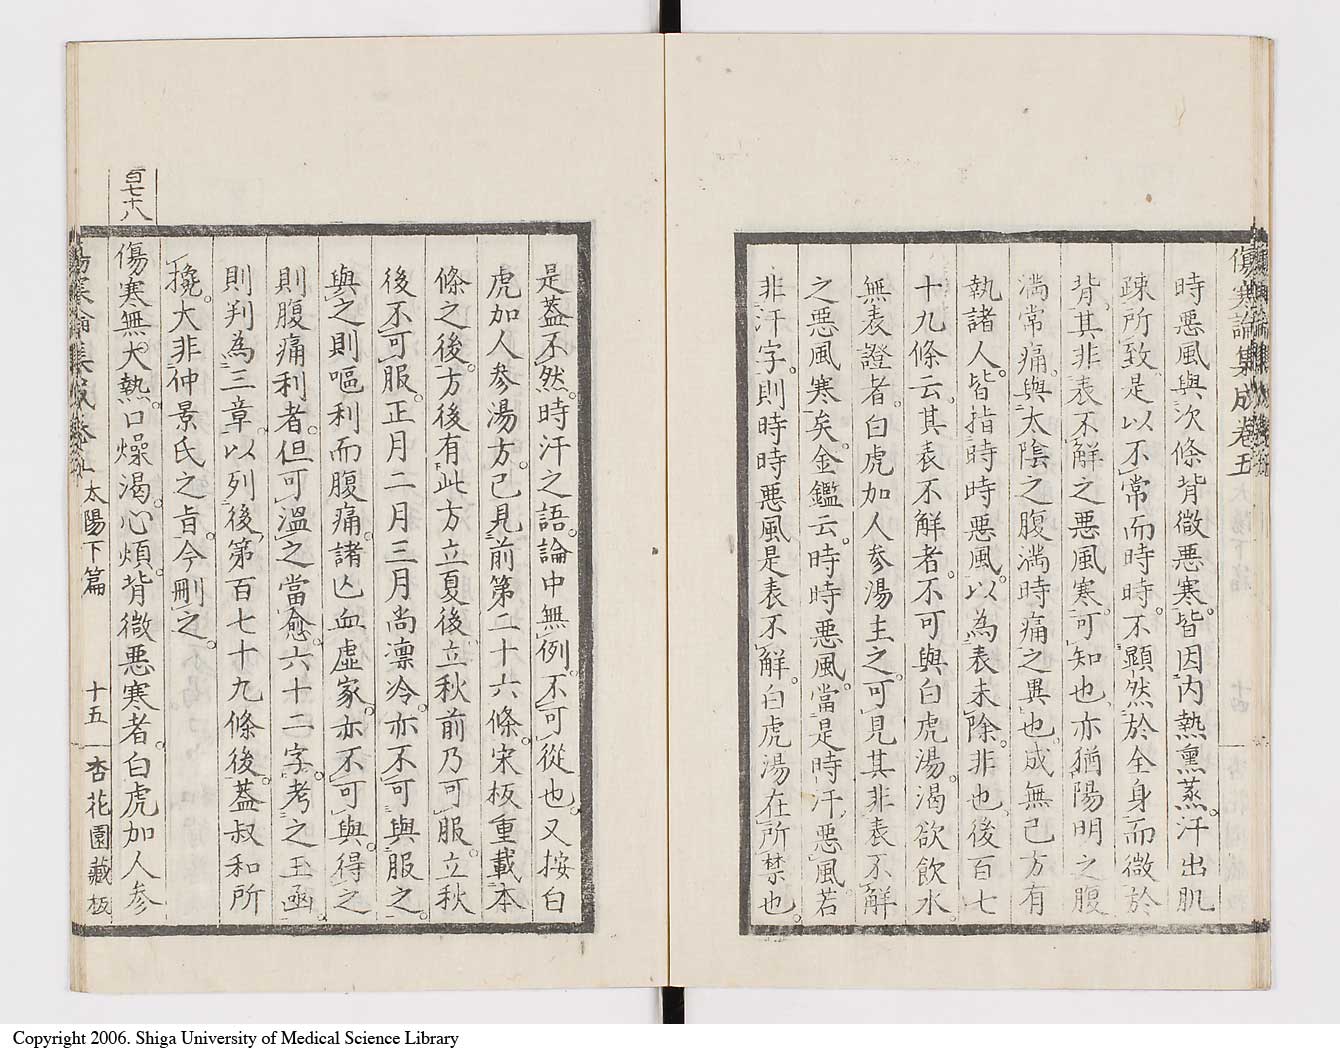 傷寒論集成卷五
時惡風與次條背微惡寒。皆因内熱熏蒸。汗出肌
疎所致是以不常而時時。不顯然於全身而微於
背。其非表不解之惡風寒。可知也、亦猶陽明之腹
満常痛。與太陰之腹満時痛之異也。成無已方有
執諸人。皆指時時惡風。以為表未除。非也、後百七
十九條云。其表不解者。不可與白虎湯。渴欲飲水
無表證者。白虎加人參湯主之。可見其非表不解
之惡風寒矣。金鑑云。時時惡風。當是時汗、惡風若
非汗字。則時時惡風是表不解。白虎湯在所禁也。
是蓋不然。時汗之語。論中無例。不可從也。又按白
虎加人參湯方。已見前第二十六條。宋板重載本
條之後。方後有此方立夏後立秋前乃可服。立秋
後不可服。正月二月三月尚凛冷。亦不可與服之。
與之則嘔利而腹痛。諸亾血虛家。亦不可與。得之
則腹痛利者。但可溫之當愈。六十二字。考之玉函。
則判為三章。以列後第百七十九條後。蓋叔和所
攙。大非仲景氏之旨。今刪之。
百七十八
傷寒無大熱。口燥渴。心煩。背微惡寒者。白虎加人參
太陽下篇 十五 杏花園藏板
Copyright 2006. Shiga University of Medical Science Library